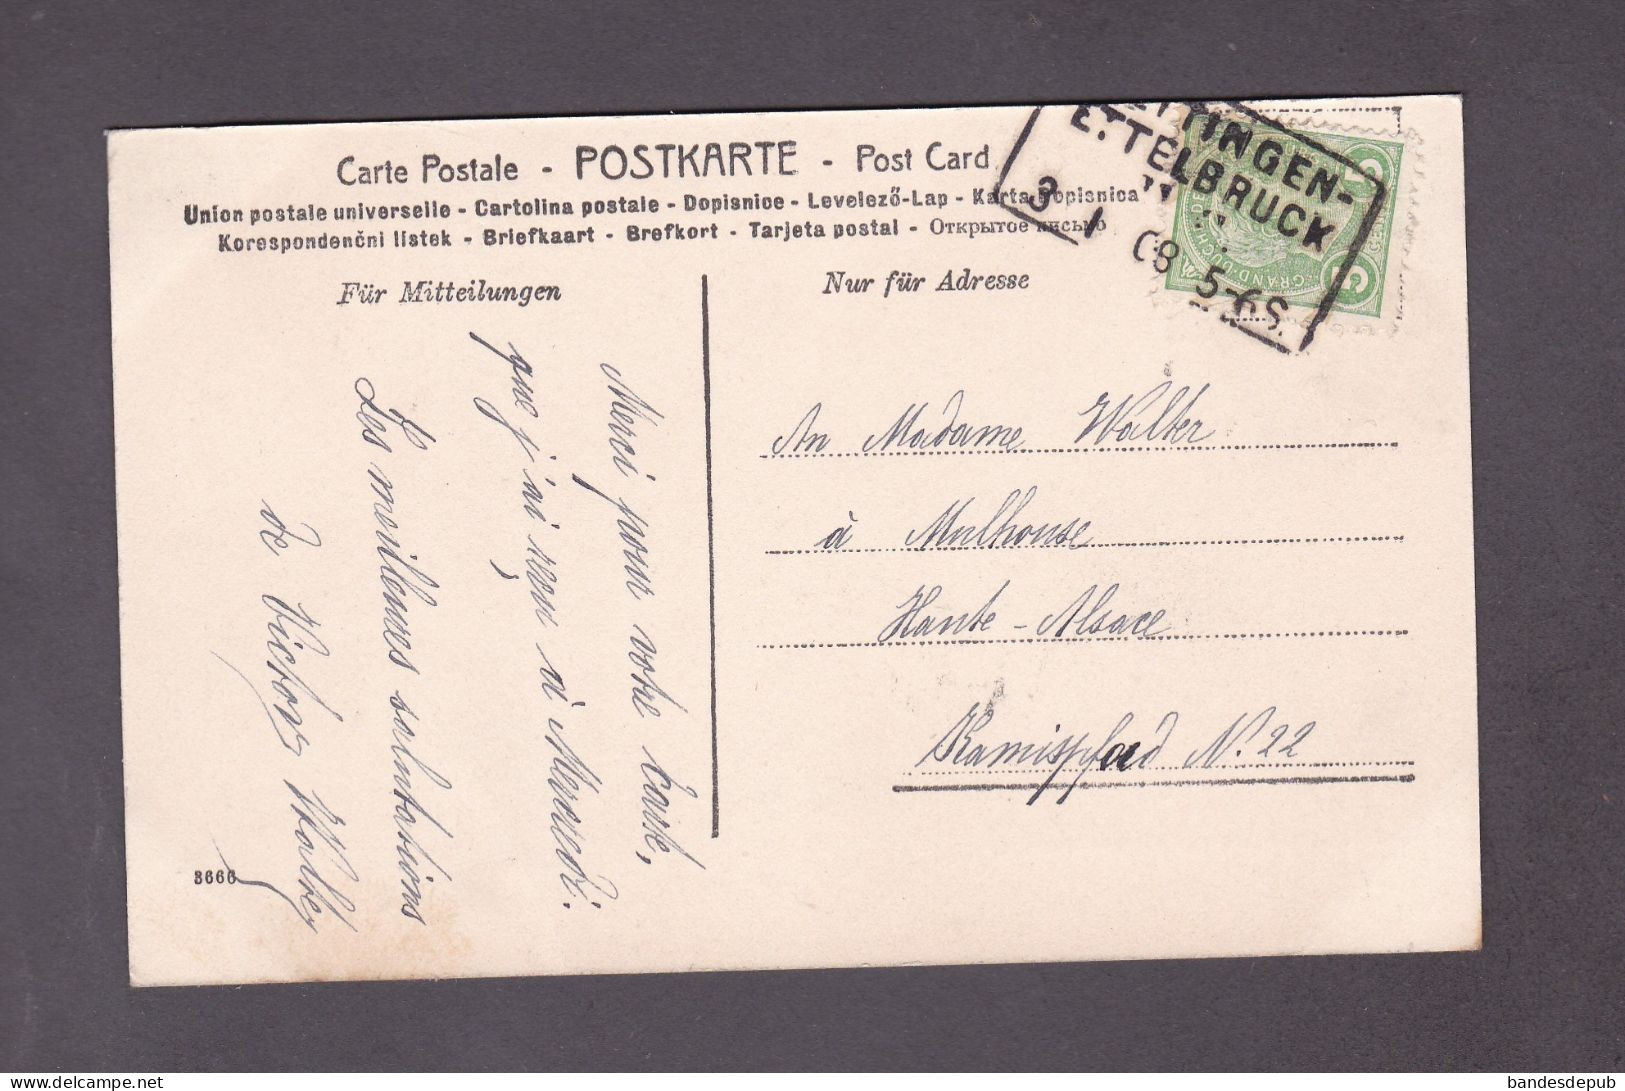 Carte Postale - POSTKARTE - Post Card
Union postale universelle - Cartolina postale - Dopisnice - Levelező-Lap - Karta Dopisnica
Korespondenční listek - Briefkaart - Brefkort - Tarjeta postal - Открытое письмо
Für Mitteilungen
Nur für Adresse
TTINGEN-
ETTELBRUCK
3 1 08 5-6S.
GRAND-DUCHÉ DE
5 5
Merci pour votre carte,
que j'ai reçu à Mercredi.
Les meilleures salutations
de Victor Walter
An Madame Walter
à Mulhouse
Haute-Alsace
N. 22
3666
bandesdepub